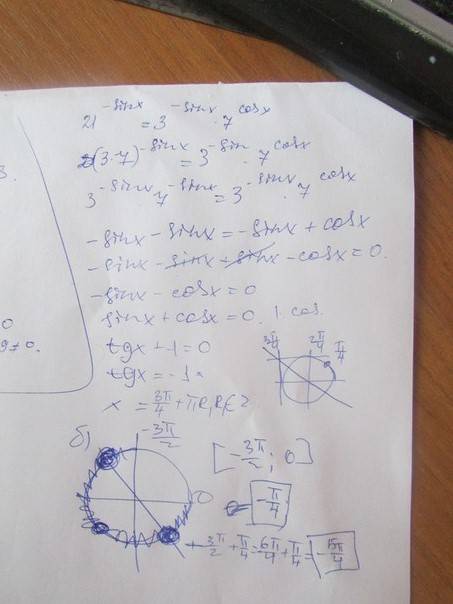 21^{-sinx} = 3^{-sinx} · 7^{cosx}
(3·7)^{-sinx} = 3^{-sin} · 7^{cosx}
3^{-sinx} 7^{-sinx} = 3^{-sinx} · 7^{cosx}
-sinx - sinx = -sinx + cosx
-sinx - sinx + sinx - cosx = 0.
-sinx - cosx = 0
sinx + cosx = 0. | cos.
tgx + 1 = 0
tgx = -1
x = 3π/4 + πk, k ∈ Z
3π/4
2π/4
π/4
б)
-3π/2
0
[-3π/2; 0]
-π/4
-3π/2 + π/4 = -6π/4 + π/4 = -5π/4
3.
0
9≠0.